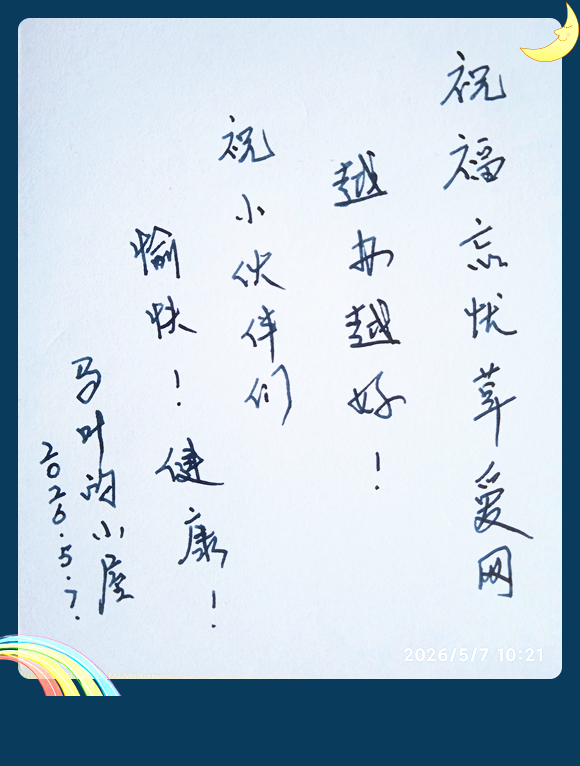 祝福忘忧草爱网
越办越好！
祝小伙伴们
愉快！健康！
马叶的小屋
2026.5.7.
2026/5/7 10:21